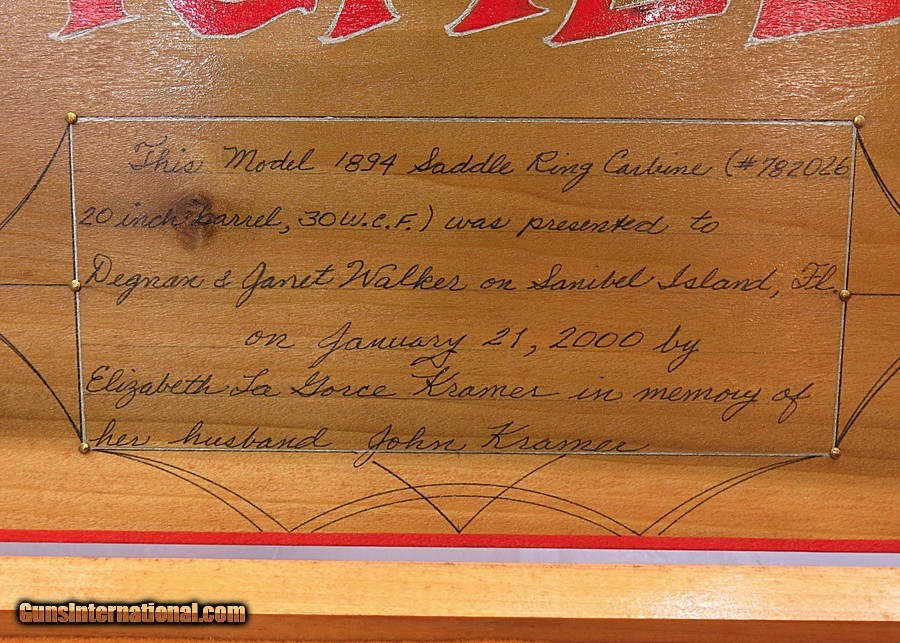 This Model 1894 Saddle Ring Carbine (#782026
20 inch barrel, 30 W.C.F.) was presented to
Degnan & Janet Walker on Sanibel Island, Fl.
on January 21, 2000 by
Elizabeth La Gorce Kramer in memory of
her husband John Kramer
GunsInternational.com